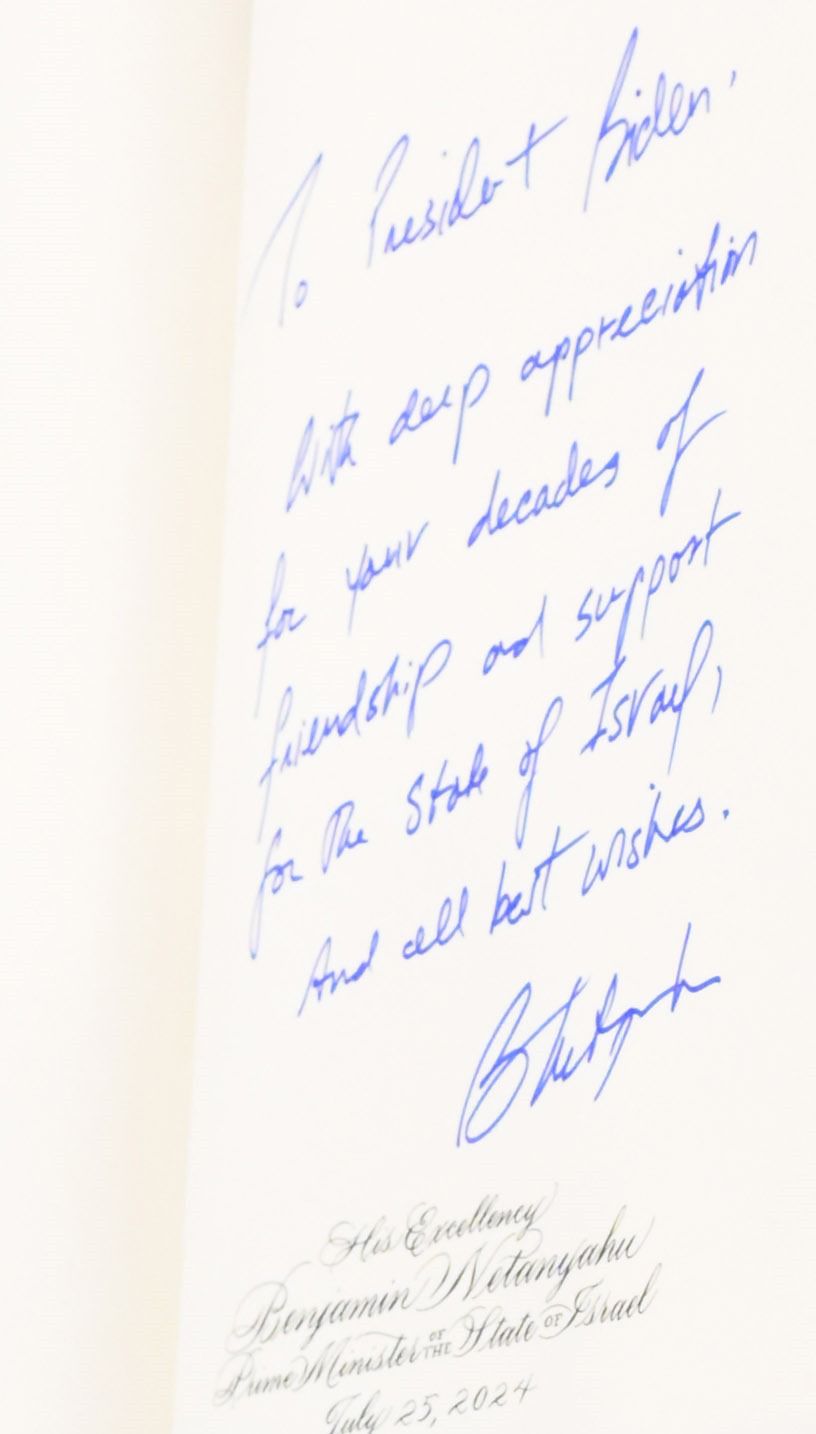 To President Biden,
With deep appreciation
for your decades of
friendship and support
for the State of Israel,
And all best wishes.
B Netanyahu
His Excellency
Benjamin Netanyahu
Prime Minister OF THE State OF Israel
July 25, 2024